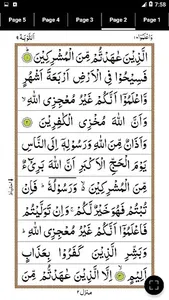 7:58
Page 5 Page 4 Page 3 Page 2 Page 1
واعلموا ١٠ التوبة ٩
الَّذِيْنَ عٰهَدْتُّمْ مِّنَ الْمُشْرِكِيْنَ
فَسِيْحُوْا فِى الْاَرْضِ اَرْبَعَةَ اَشْهُرٍ
وَّاعْلَمُوْۤا اَنَّكُمْ غَيْرُ مُعْجِزِى اللّٰهِ
وَاَنَّ اللّٰهَ مُخْزِى الْكٰفِرِيْنَ
وَاَذَانٌ مِّنَ اللّٰهِ وَرَسُوْلِهٖۤ اِلَى النَّاسِ
يَوْمَ الْحَجِّ الْاَكْبَرِ اَنَّ اللّٰهَ بَرِىْٓءٌ
مِّنَ الْمُشْرِكِيْنَ ۙ وَرَسُوْلُهٗ ؕ فَاِنْ
تُبْتُمْ فَهُوَ خَيْرٌ لَّكُمْ ۚ وَاِنْ تَوَلَّيْتُمْ
فَاعْلَمُوْۤا اَنَّكُمْ غَيْرُ مُعْجِزِى اللّٰهِ ؕ
وَبَشِّرِ الَّذِيْنَ كَفَرُوْا بِعَذَابٍ
اَلِيْمٍ اِلَّا الَّذِيْنَ عٰهَدْتُّمْ مِّنَ
منزل ٢